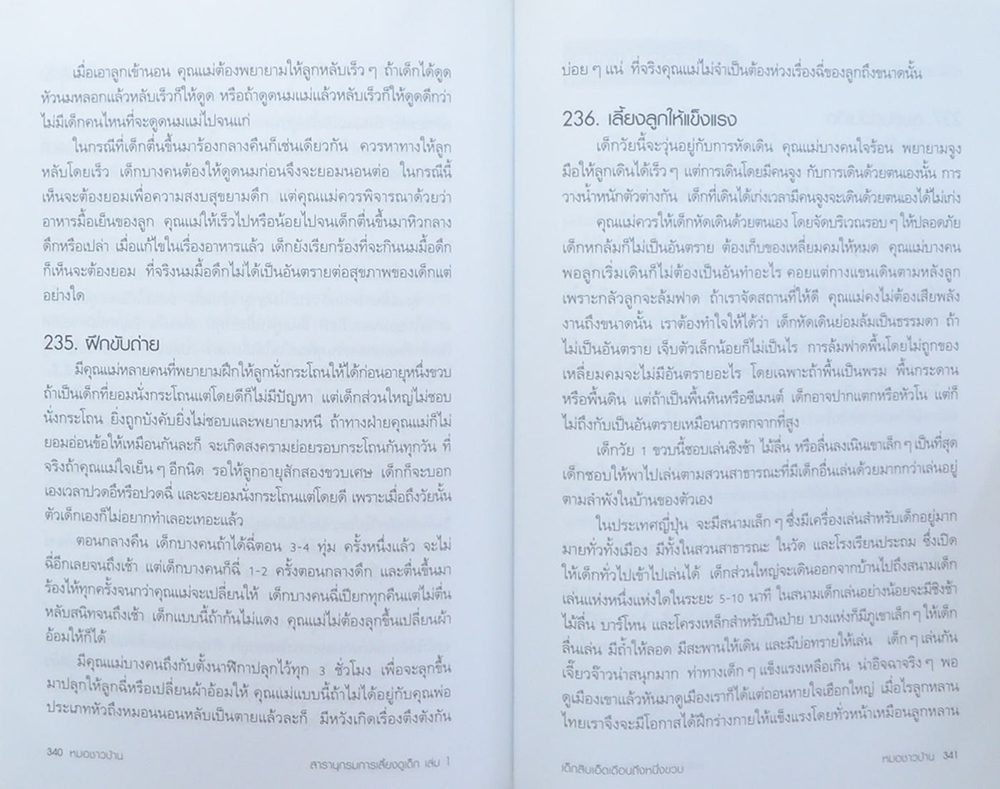 เมื่อเอาลูกเข้านอน คุณแม่ต้องพยายามให้ลูกหลับเร็วๆ ถ้าเด็กได้ดูด
หัวนมหลอกแล้วหลับเร็วก็ให้ดูด หรือถ้าดูดนมแม่แล้วหลับเร็วก็ให้ดูดดีกว่า
ไม่มีเด็กคนไหนที่จะดูดนมแม่ไปจนแก่
ในกรณีที่เด็กตื่นขึ้นมาร้องกลางคืนก็เช่นเดียวกัน ควรหาทางให้ลูก
หลับโดยเร็ว เด็กบางคนต้องให้ดูดนมก่อนจึงจะยอมนอนต่อ ในกรณีนี้
เห็นจะต้องยอมเพื่อความสงบสุขยามดึก แต่คุณแม่ควรพิจารณาด้วยว่า
อาหารมื้อเย็นของลูก คุณแม่ให้เร็วไปหรือน้อยไปจนเด็กตื่นขึ้นมาหิวกลาง
ดึกหรือเปล่า เมื่อแก้ไขในเรื่องอาหารแล้ว เด็กยังเรียกร้องที่จะกินนมมื้อดึก
ก็เห็นจะต้องยอม ที่จริงนมมื้อดึกไม่ได้เป็นอันตรายต่อสุขภาพของเด็กแต่
อย่างใด
235. ฝึกขับถ่าย
มีคุณแม่หลายคนที่พยายามฝึกให้ลูกนั่งกระโถนให้ได้ก่อนอายุหนึ่งขวบ
ถ้าเป็นเด็กที่ยอมนั่งกระโถนแต่โดยดีก็ไม่มีปัญหา แต่เด็กส่วนใหญ่ไม่ชอบ
นั่งกระโถน ยิ่งถูกบังคับยิ่งไม่ชอบและพยายามหนี ถ้าทางฝ่ายคุณแม่ก็ไม่
ยอมอ่อนข้อให้เหมือนกันละก็ จะเกิดสงครามย่อยรอบกระโถนกันทุกวัน ที่
จริงถ้าคุณแม่ใจเย็นๆ อีกนิด รอให้ลูกอายุสักสองขวบเศษ เด็กก็จะบอก
เองเวลาปวดอึหรือปวดฉี่ และจะยอมนั่งกระโถนแต่โดยดี เพราะเมื่อถึงวัยนั้น
ตัวเด็กเองก็ไม่อยากทำเลอะเทอะแล้ว
ตอนกลางคืน เด็กบางคนถ้าได้ฉี่ตอน 3-4 ทุ่ม ครั้งหนึ่งแล้ว จะไม่
ฉี่อีกเลยจนถึงเช้า แต่เด็กบางคนก็ฉี่ 1-2 ครั้งตอนกลางดึก และตื่นขึ้นมา
ร้องไห้ทุกครั้งจนกว่าคุณแม่จะเปลี่ยนให้ เด็กบางคนฉี่เปียกทุกคืนแต่ไม่ตื่น
หลับสนิทจนถึงเช้า เด็กแบบนี้ถ้าก้นไม่แดง คุณแม่ไม่ต้องลุกขึ้นเปลี่ยนผ้า
อ้อมให้ก็ได้
มีคุณแม่บางคนถึงกับตั้งนาฬิกาปลุกไว้ทุก 3 ชั่วโมง เพื่อจะลุกขึ้น
มาปลุกให้ลูกฉี่หรือเปลี่ยนผ้าอ้อมให้ คุณแม่แบบนี้ถ้าไม่ได้อยู่กับคุณพ่อ
ประเภทหัวถึงหมอนนอนหลับเป็นตายแล้วละก็ มีหวังเกิดเรื่องตึงตังกัน
340 หมอชาวบ้าน
สารานุกรมการเลี้ยงดูเด็ก เล่ม 1
บ่อยๆ แน่ ที่จริงคุณแม่ไม่จำเป็นต้องห่วงเรื่องฉี่ของลูกถึงขนาดนั้น
236. เลี้ยงลูกให้แข็งแรง
เด็กวัยนี้จะวุ่นอยู่กับการหัดเดิน คุณแม่บางคนใจร้อน พยายามจูง
มือให้ลูกเดินได้เร็วๆ แต่การเดินโดยมีคนจูง กับการเดินด้วยตนเองนั้น การ
วางน้ำหนักตัวต่างกัน เด็กที่เดินได้เก่งเวลามีคนจูงจะเดินด้วยตนเองได้ไม่เก่ง
คุณแม่ควรให้เด็กหัดเดินด้วยตนเอง โดยจัดบริเวณรอบๆ ให้ปลอดภัย
เด็กหกล้มก็ไม่เป็นอันตราย ต้องเก็บของเหลี่ยมคมให้หมด คุณแม่บางคน
พอลูกเริ่มเดินก็ไม่ต้องเป็นอันทำอะไร คอยแต่กางแขนเดินตามหลังลูก
เพราะกลัวลูกจะล้มฟาด ถ้าเราจัดสถานที่ให้ดี คุณแม่คงไม่ต้องเสียพลัง
งานถึงขนาดนั้น เราต้องทำใจให้ได้ว่า เด็กหัดเดินย่อมล้มเป็นธรรมดา ถ้า
ไม่เป็นอันตราย เจ็บตัวเล็กน้อยก็ไม่เป็นไร การล้มฟาดพื้นโดยไม่ถูกของ
เหลี่ยมคมจะไม่มีอันตรายอะไร โดยเฉพาะถ้าพื้นเป็นพรม พื้นกระดาน
หรือพื้นดิน แต่ถ้าเป็นพื้นหินหรือซีเมนต์ เด็กอาจปากแตกหรือหัวโน แต่ก็
ไม่ถึงกับเป็นอันตรายเหมือนการตกจากที่สูง
เด็กวัย 1 ขวบนี้ชอบเล่นชิงช้า ไม้ลื่น หรือลื่นลงเนินเขาเล็กๆ เป็นที่สุด
เด็กชอบให้พาไปเล่นตามสวนสาธารณะที่มีเด็กอื่นเล่นด้วยมากกว่าเล่นอยู่
ตามลำพังในบ้านของตัวเอง
ในประเทศญี่ปุ่น จะมีสนามเล็กๆ ซึ่งมีเครื่องเล่นสำหรับเด็กอยู่มาก
มายทั่วทั้งเมือง มีทั้งในสวนสาธารณะ ในวัด และโรงเรียนประถม ซึ่งเปิด
ให้เด็กทั่วไปเข้าไปเล่นได้ เด็กส่วนใหญ่จะเดินออกจากบ้านไปถึงสนามเด็ก
เล่นแห่งหนึ่งแห่งใดในระยะ 5-10 นาที ในสนามเด็กเล่นอย่างน้อยจะมีชิงช้า
ไม้ลื่น บาร์โหน และโครงเหล็กสำหรับปีนป่าย บางแห่งก็มีภูเขาเล็กๆ ให้เด็ก
ลื่นเล่น มีถ้ำให้ลอด มีสะพานให้เดิน และมีบ่อทรายให้เล่น เด็กๆ เล่นกัน
เจี๊ยวจ๊าวน่าสนุกมาก ท่าทางเด็กๆ แข็งแรงเหลือเกิน น่าอิจฉาจริงๆ พอ
ดูเมืองเขาแล้วหันมาดูเมืองเราก็ได้แต่ถอนหายใจเฮือกใหญ่ เมื่อไรลูกหลาน
ไทยเราจึงจะมีโอกาสได้ฝึกร่างกายให้แข็งแรงโดยทั่วหน้าเหมือนลูกหลาน
เด็กสิบเอ็ดเดือนถึงหนึ่งขวบ
หมอชาวบ้าน 341